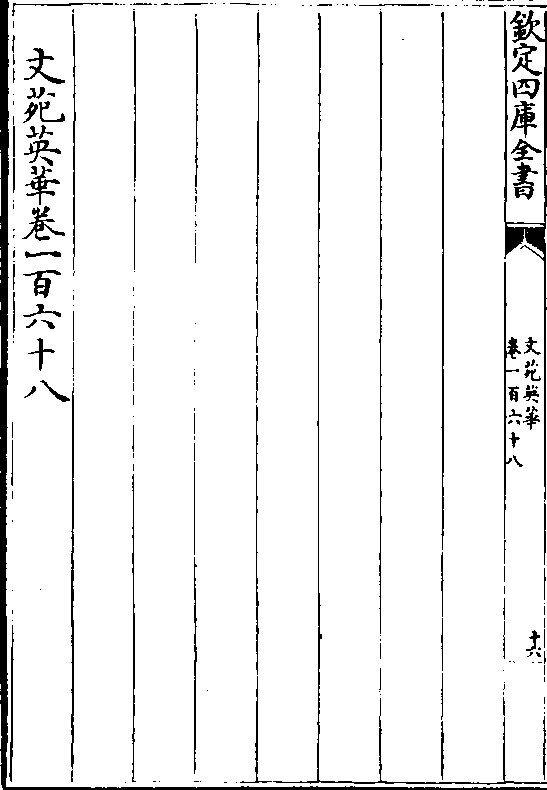 欽定四庫全書
文苑英華
卷一百六十八
十六
文苑英華卷一百六十八